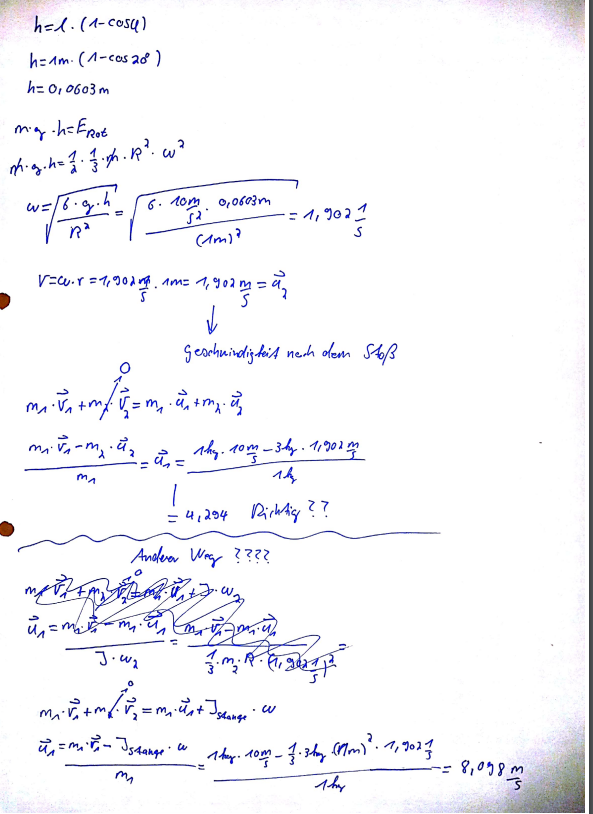 h=l·(1-cosφ)
h=1m·(1-cos20°)
h=0,0603m
m·g·h=E_Rot
m·g·h=1/2·1/3·m·R²·ω²
ω=√(6·g·h/R²)=√(6·10m/s²·0,0603m/(1m)²)=1,902 1/s
V=ω·r=1,902 m/s·1m=1,902 m/s=u⃗₂
↓
Geschwindigkeit nach dem Stoß
0
m₁·v⃗₁+m₂·v⃗₂=m₁·u⃗₁+m₂·u⃗₂
(m₁·v⃗₁-m₂·u⃗₂)/m₁=u⃗₁=(1kg·10m/s-3kg·1,902m/s)/1kg
=4,294 Richtig??
Anderer Weg ????
0
m₁·v⃗₁+m₂·v⃗₂=m₁·u⃗₁+J·ω₂
u⃗₁=(m₁·v⃗₁-m₁·u⃗₁)/(J·ω₂)=(m₁·v⃗₁-m₁·u⃗₁)/(1/3·m₂·R·(1,902 1/s)²)=
0
m₁·v⃗₁+m₂·v⃗₂=m₁·u⃗₁+J_Stange·ω
u⃗₁=(m₁·v⃗₁-J_Stange·ω)/m₁=(1kg·10m/s-1/3·3kg·(1m)²·1,902 1/s)/1kg=8,098 m/s